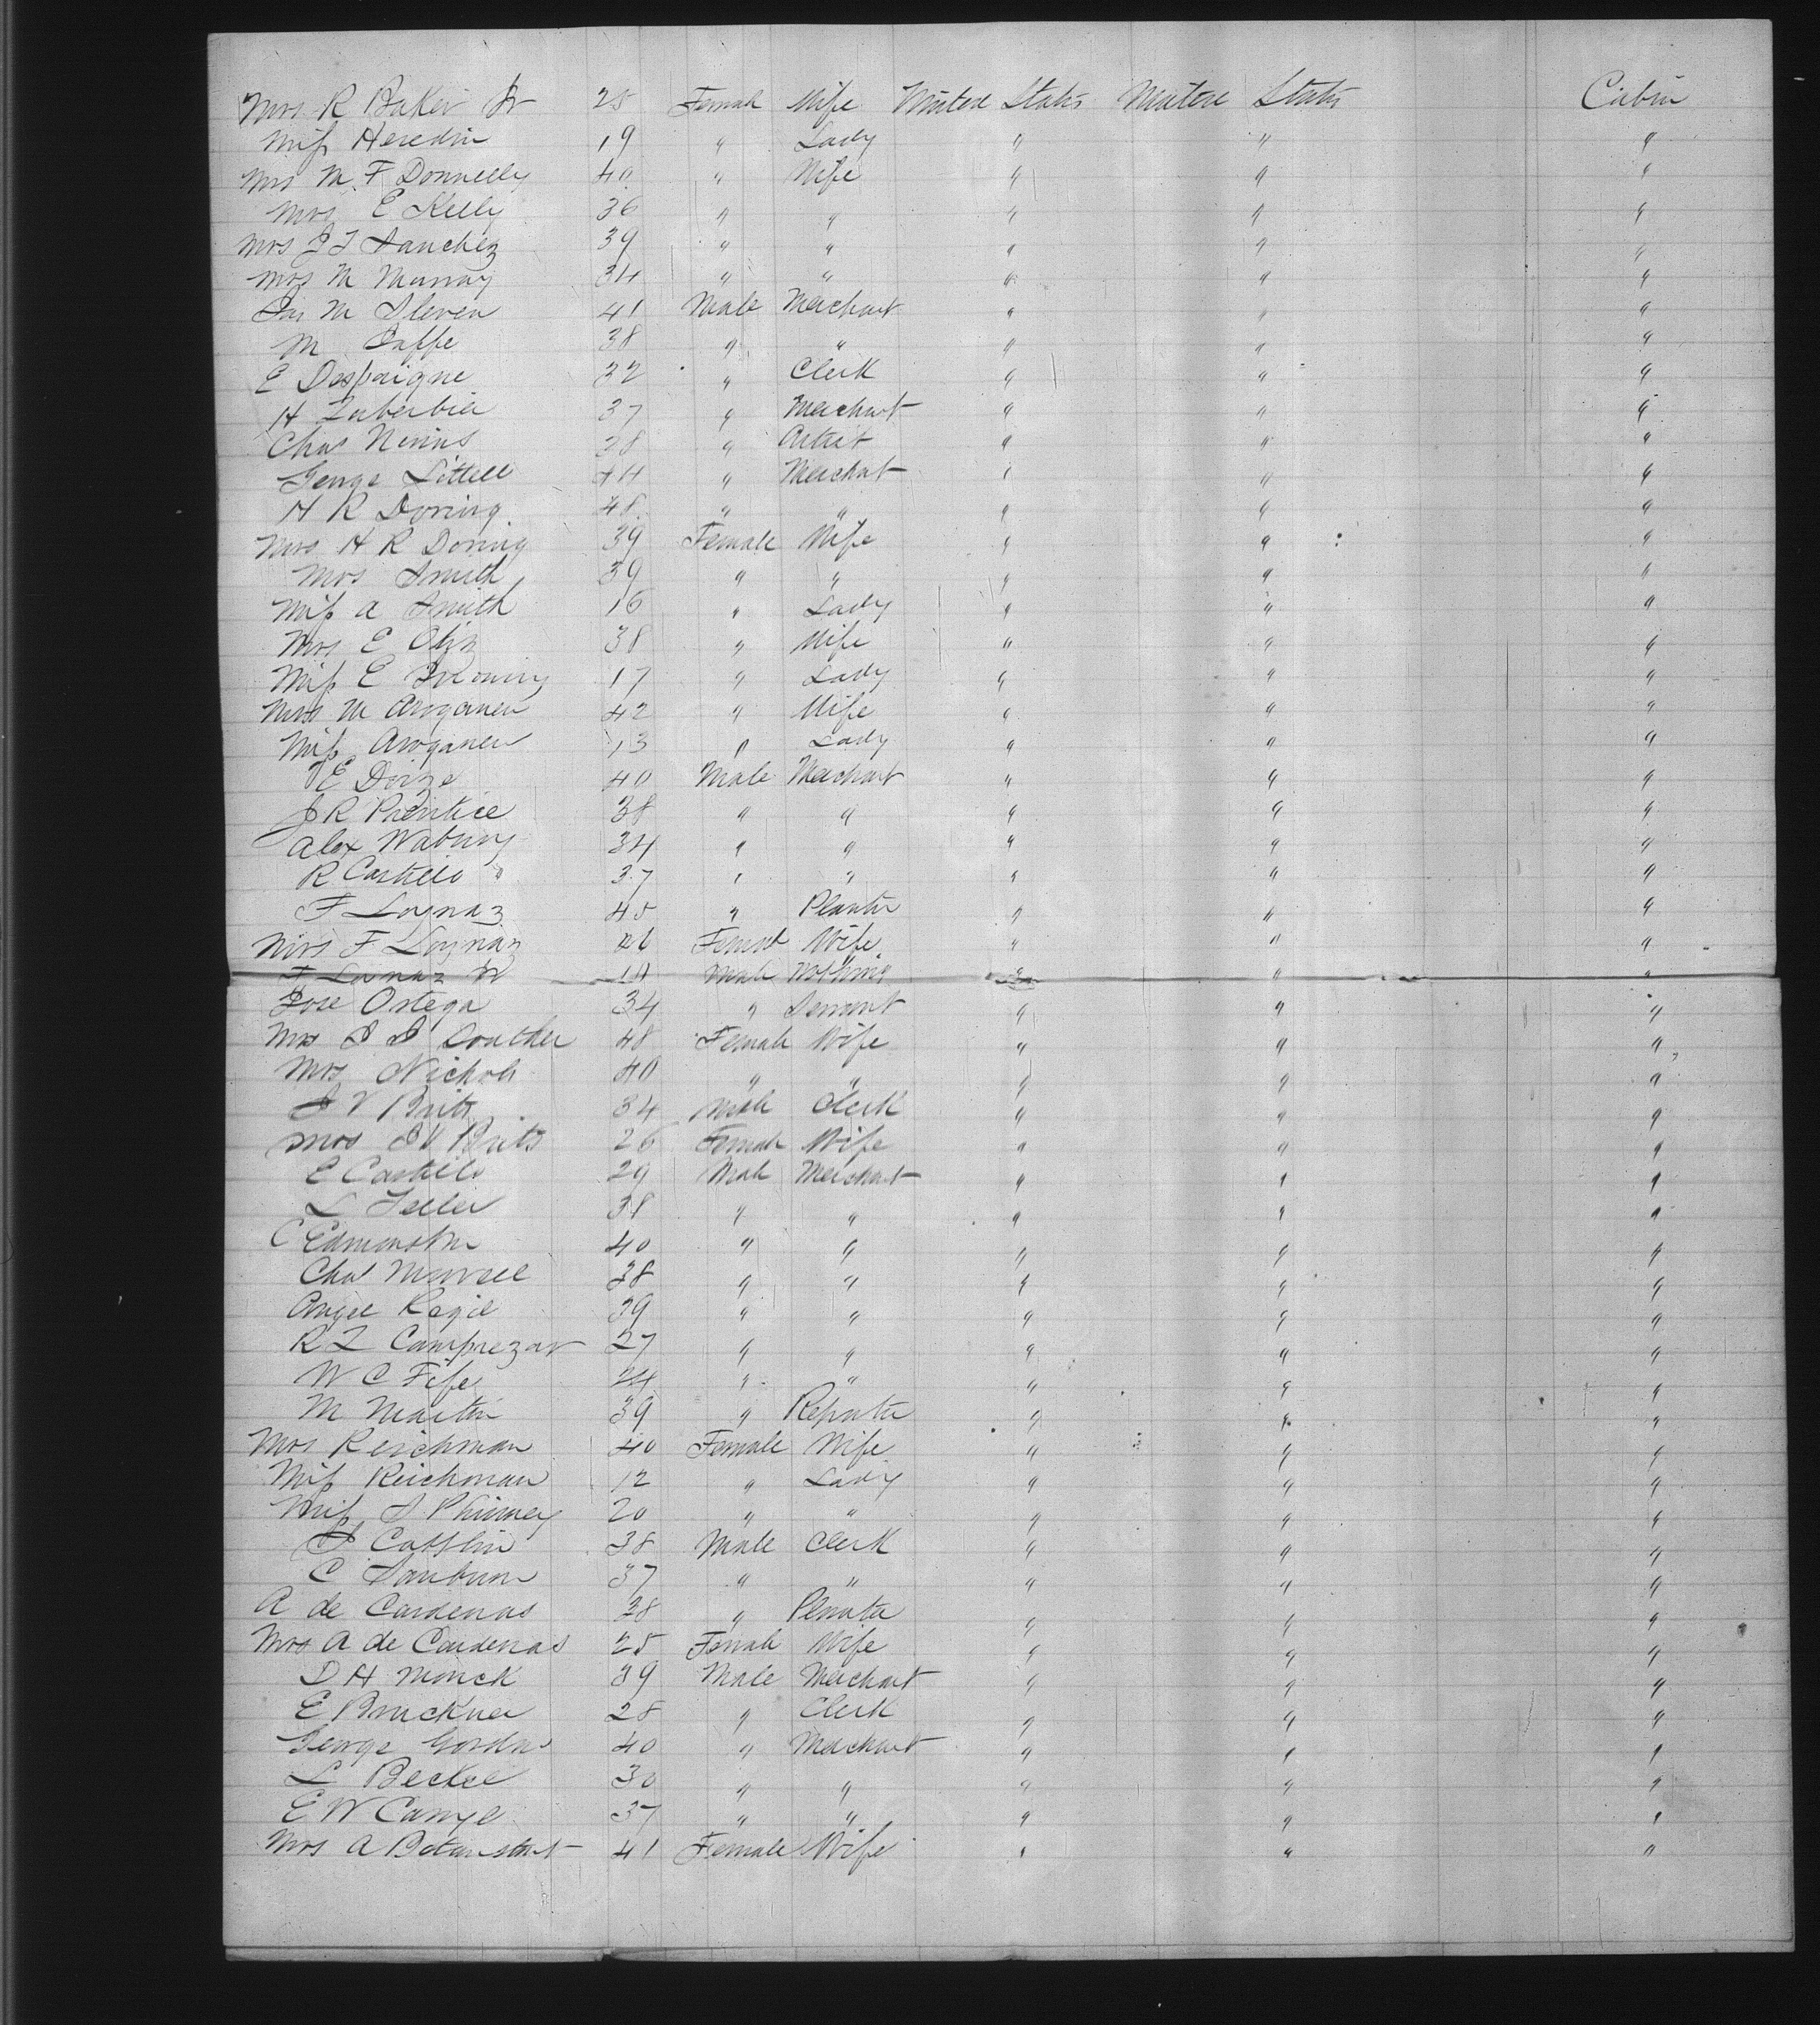 Mrs R Baker Jr 25 Female Wife United States United States Cabin
Miss Heredia 19 " Lady " " "
Mrs M. F Donnelly 40 " Wife " " "
Mrs E Kelly 36 " " " " "
Mrs J T Sanchez 39 " " " " "
Mrs M Murray 34 " " " " "
Jas M Steven 41 Male Merchant " " "
M Jaffe 38 " " " " "
E Despaigne 32 " Clerk " " "
H Zuberbier 37 " Merchant " " "
Chas Nevins 38 " Artist " " "
George Littell 44 " Merchant " " "
H R Doring 48 " " " " "
Mrs H R Doring 39 Female Wife " " "
Mrs Smith 39 " " " " "
Miss A Smith 16 " Lady " " "
Mrs E 38 " Wife " " "
Miss E 17 " Lady " " "
Mrs M Aroganen 42 " Wife " " "
Miss Aroganen 13 " Lady " " "
E Doize 40 Male Merchant " " "
J R Prentice 38 " " " " "
Alex Watung 34 " " " " "
R Castillo 37 " " " " "
F Loynaz 45 " Planter " " "
Mrs F Loynaz Female Wife " " "
F Loynaz Jr Male Nothing " " "
Jose Ortega 34 " Servant " " "
Mrs J J Couther 48 Female Wife " " "
Mrs Nichols 40 " " " " "
J V Brits 34 Male Clerk " " "
Mrs J V Brits 26 Female Wife " " "
E Castillo 29 Male Merchant " " "
L Feller 38 " " " " "
C Edmonston 40 " " " " "
Chas Morrell 38 " " " " "
Angel Regil 39 " " " " "
R L Camprezar 27 " " " " "
W C Fife 24 " " " " "
M Martin 39 " Reporter " " "
Mrs Reichman 40 Female Wife " " "
Miss Reichman 12 " Lady " " "
Miss S Phinney 20 " " " " "
J Catflin 38 Male Clerk " " "
C Sanburn 37 " " " " "
A de Cardenas 38 " Planter " " "
Mrs A de Cardenas 25 Female Wife " " "
D H Monck 39 Male Merchant " " "
E Bruckner 28 " Clerk " " "
George Gordon 40 " Merchant " " "
L Beckel 30 " " " " "
E W Canye 37 " " " " "
Mrs A 41 Female Wife " " "